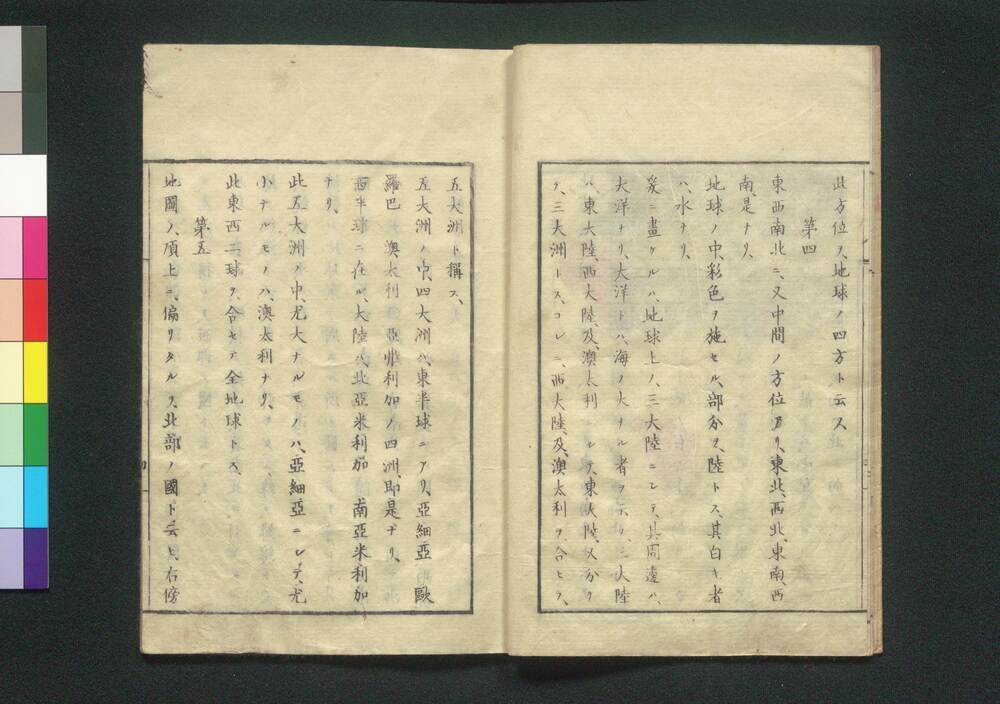 此方位ヲ、地球ノ四方ト云ス
第四
東西南北ニ、又中間ノ方位アリ、東北、西北、東南、西
南、是ナリ、
地球ノ中、彩色ヲ施セル、部分ヲ、陸トス、其白キ者
ハ、水ナリ、
爰ニ畫ケルハ、地球上ノ、三大陸ニシテ、其周邊ハ、
大洋ナリ、大洋トハ、海ノ大ナル者ヲ云フ、三大陸
ハ、東大陸、西大陸、及、澳太利ニシテ、東大陸、又分ケ
テ、三大洲トス、コレニ、西大陸、及、澳太利ヲ、合セテ、
五大洲ト稱ス、
五大洲ノ内、四大洲ハ、東半球ニアリ、亞細亞 歐
羅巴 澳太利 亞非利加ノ四洲、即是ナリ、
西半球ニ在ル、大陸ハ、北亞米利加 南亞米利加
ナリ、
此五大洲ノ中、尤大ナルモノハ、亞細亞ニシテ、尤
小ナルモノハ、澳太利ナリ、
此東西二球ヲ、合セテ全地球トス、
第五
地圖ノ、頂上ニ、偏リタルヲ、北部ノ國ト云ヒ、右傍